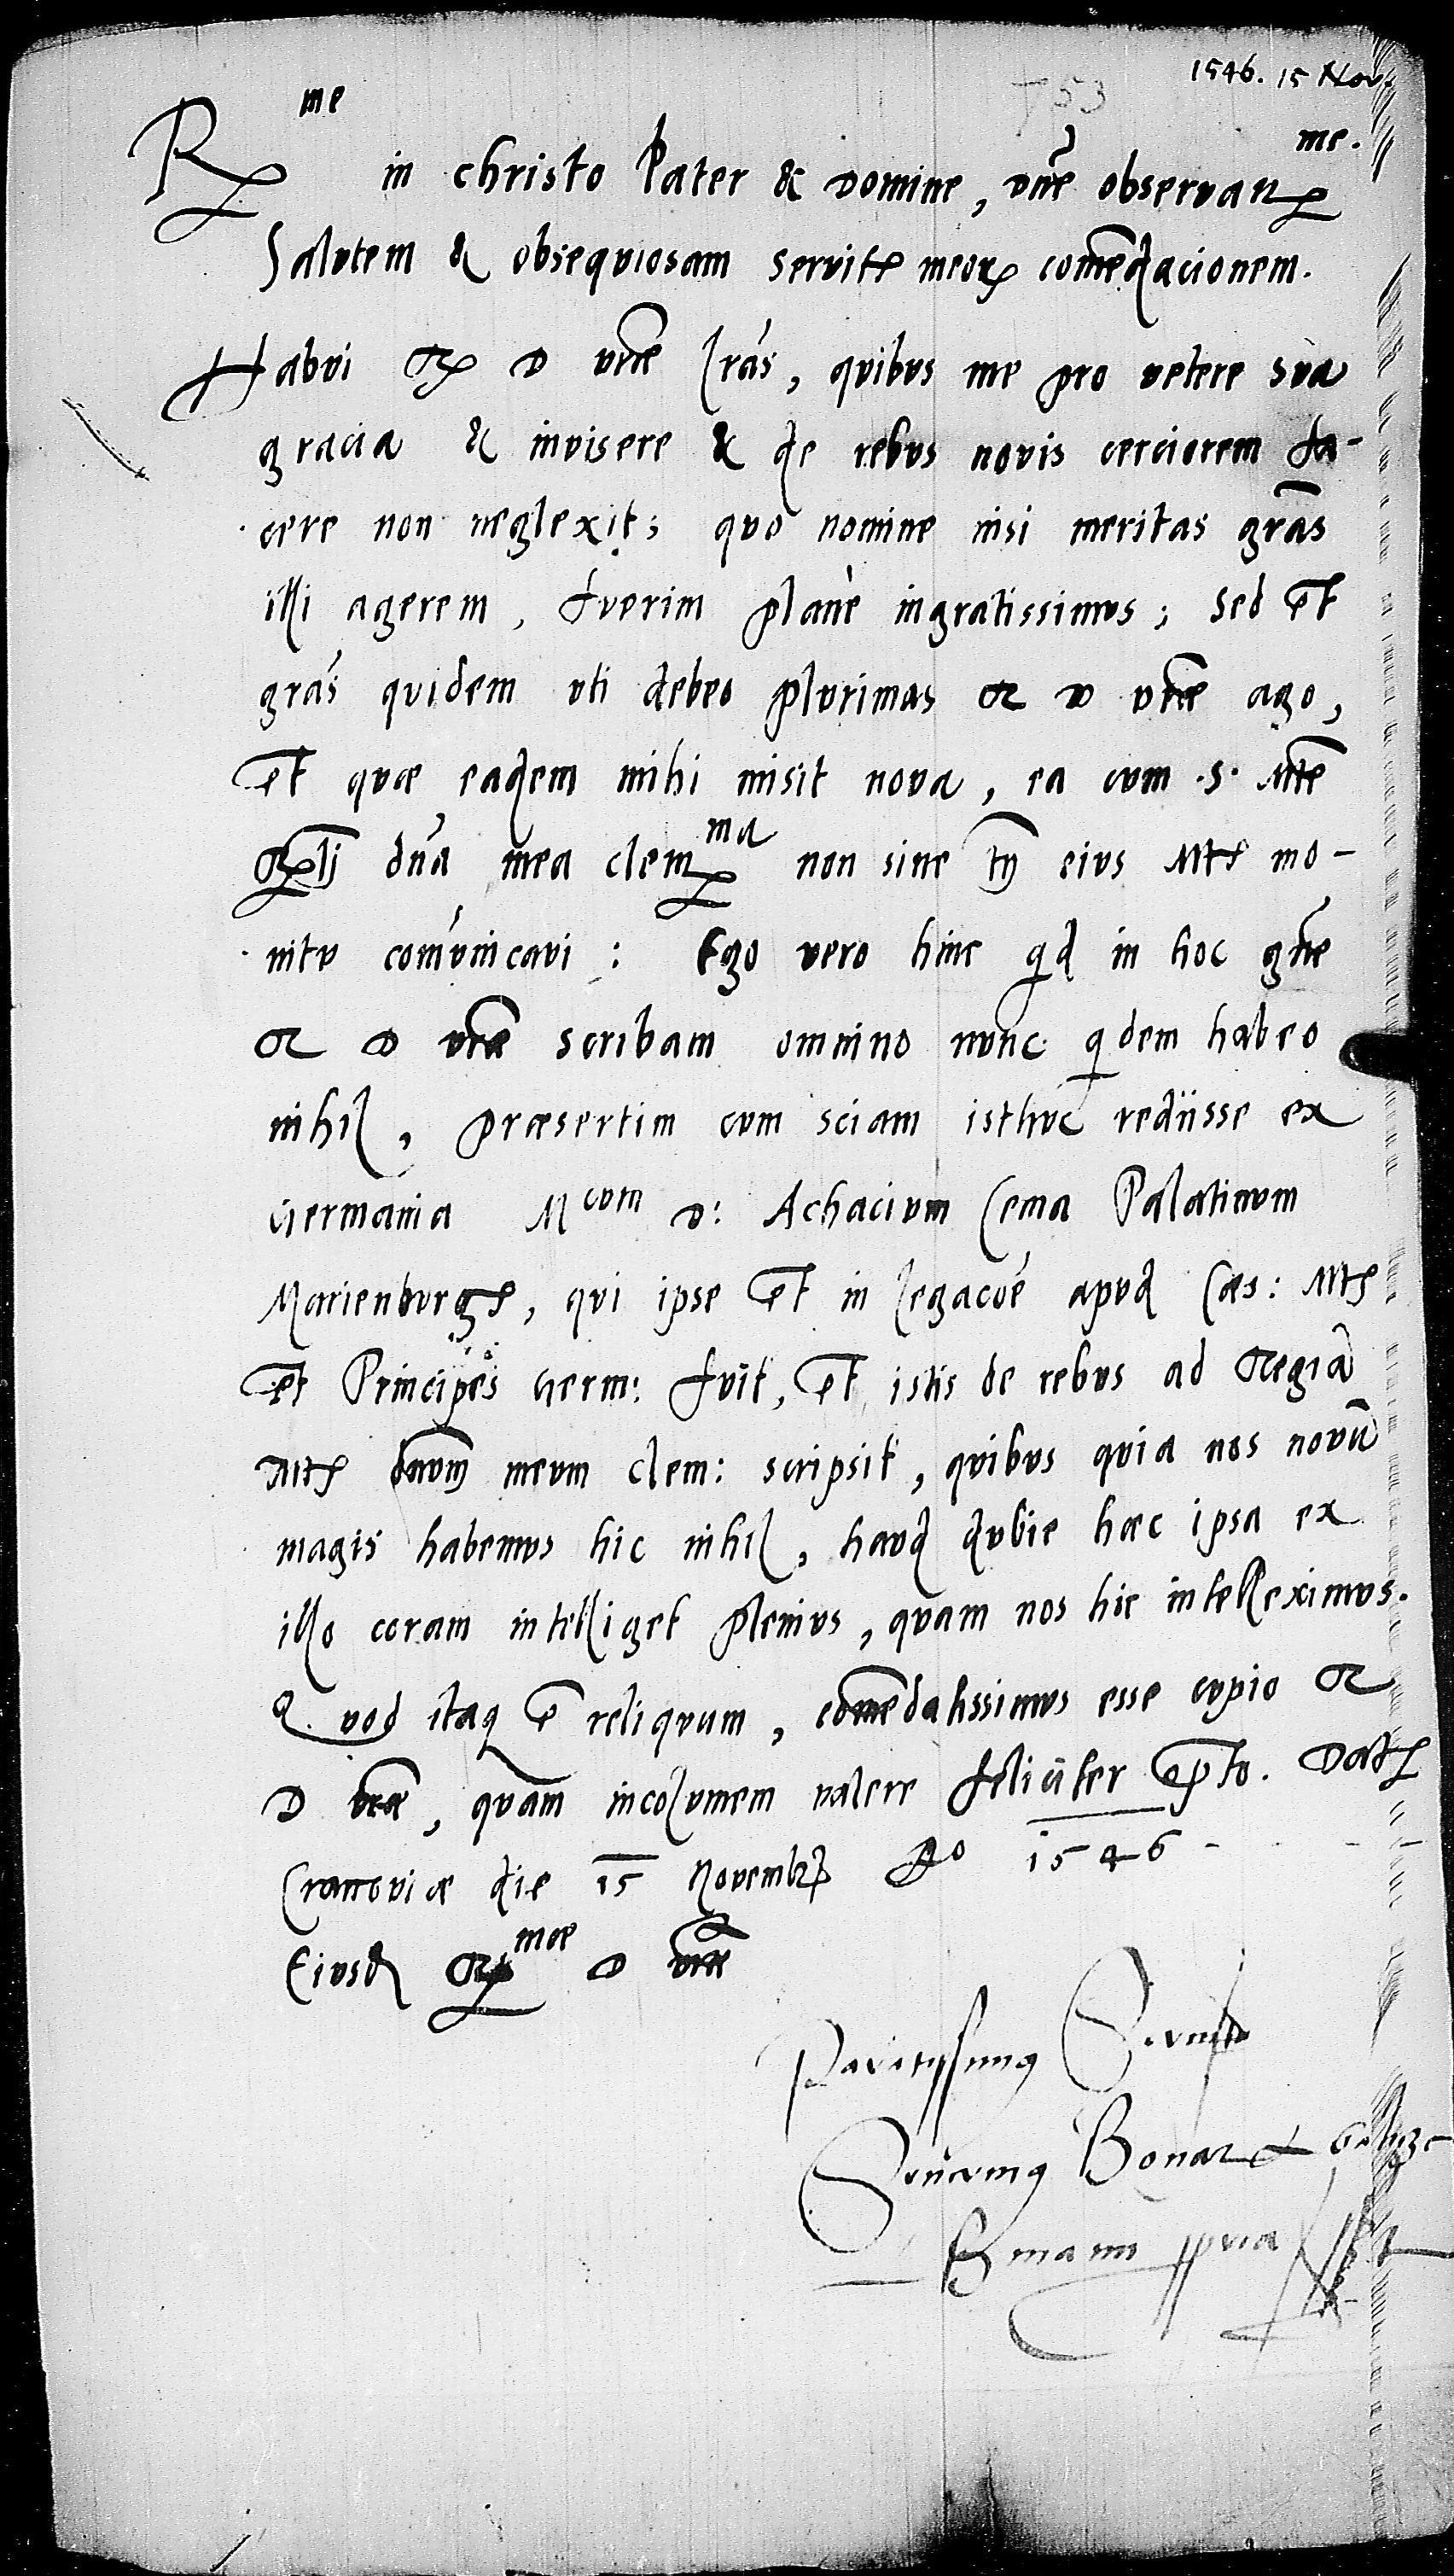 1546. 15 Nov.
753
R me in christo Pater & domine, dne observan me.
Salutem & obsequiosam servit meor comedacionem.
Habui R D vrae lras, quibus me pro vetere sua
gracia & invisere & de rebus novis cerciorem fa-
cere non neglexit; quo nomine nisi meritas gras
illi agerem, fuerim planè ingratissimus; sed et
gras quidem uti debeo plurimas R D vrae ago,
et quae eadem mihi misit nova, ea cum .S. Mte
Rli dna mea clem ma non sine tn eius Mts mo-
nitu comunicavi: Ego vero hinc qd in hoc gne
R D vrae scribam omnino nunc qdem habeo
nihil, praesertim cum sciam isthuc rediisse ex
Germania M cum D: Achacium Cema Palatinum
Marienburgs, qui ipse et in legacoe apud Caes: Mts
et Principes Germ: fuit, et istis de rebus ad Regia
Mts dnum meum clem: scripsit, quibus quia nos novu
magis habemus hic nihil, haud dubie haec ipsa ex
illo coram intelliget plenius, quam nos hic intelleximus.
Quod itaq e reliquum, comedatissimus esse cupio R
D vrae, quam incolumem valere feliciter opto. Dat
Cracoviae die 15 Novembr Ao 1546
Eiusd R mae D vrae
Paratissimus Servit
Severinus Boner de Balicze
manu ppria sst